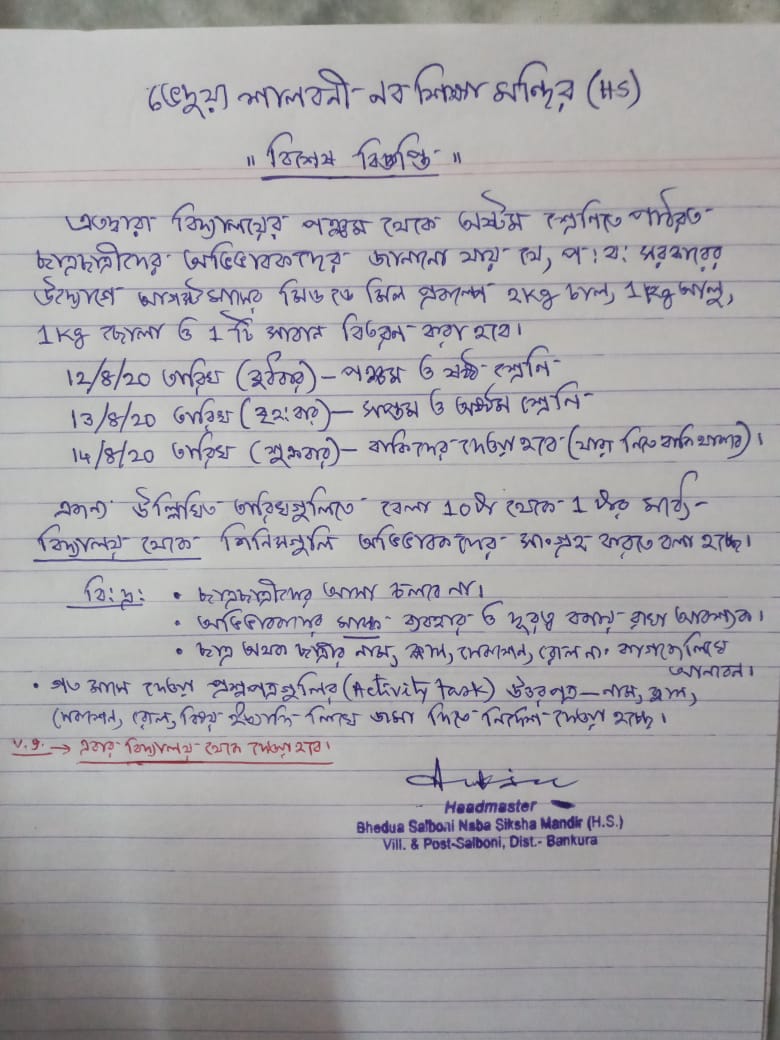 ভেদুয়া শালবনী নব শিক্ষা মন্দির (HS)
" বিশেষ বিজ্ঞপ্তি "
এতদ্বারা বিদ্যালয়ের পঞ্চম থেকে অষ্টম শ্রেনিতে পাঠরত
ছাত্রছাত্রীদের অভিভাবকদের জানানো যায় যে, প: ব: সরকারের
উদ্যোগে আগষ্টমাসের মিড ডে মিল প্রকল্পে 2Kg চাল, 1Kg আলু,
1Kg ছোলা ও 1 টি সাবান বিতরন করা হবে।
12/8/20 তারিখ (বুধবার) – পঞ্চম ও ষষ্ঠ শ্রেনি
13/8/20 তারিখ (বৃহ:বার) – সপ্তম ও অষ্টম শ্রেনি
14/8/20 তারিখ (শুক্রবার) – বাকিদের দেওয়া হবে (যারা নিতে বাকি থাকবে)।
এজন্য উল্লিখিত তারিখগুলিতে বেলা 10টা থেকে 1 টার মধ্যে
বিদ্যালয় থেকে জিনিসগুলি অভিভাবকদের সংগ্রহ করতে বলা হচ্ছে।
বি: দ্র: • ছাত্রছাত্রীদের আসা চলবে না।
• অভিভাবকদের মাস্ক ব্যবহার ও দূরত্ব বজায় রাখা আবশ্যক।
• ছাত্র অথবা ছাত্রীর নাম, ক্লাস, সেকশন, রোল নং কাগজে লিখে
আনবেন।
• গত মাসে দেওয়া প্রশ্নপত্রগুলির (Activity Task) উত্তরপত্র – নাম, ক্লাস,
সেকশন, রোল, বিষয় ইত্যাদি লিখে জমা দিতে নির্দেশ দেওয়া হচ্ছে।
V.I. → এবার বিদ্যালয় থেকে দেওয়া হবে।
Headmaster
Bhedua Salboni Naba Siksha Mandir (H.S.)
Vill. & Post-Salboni, Dist.- Bankura